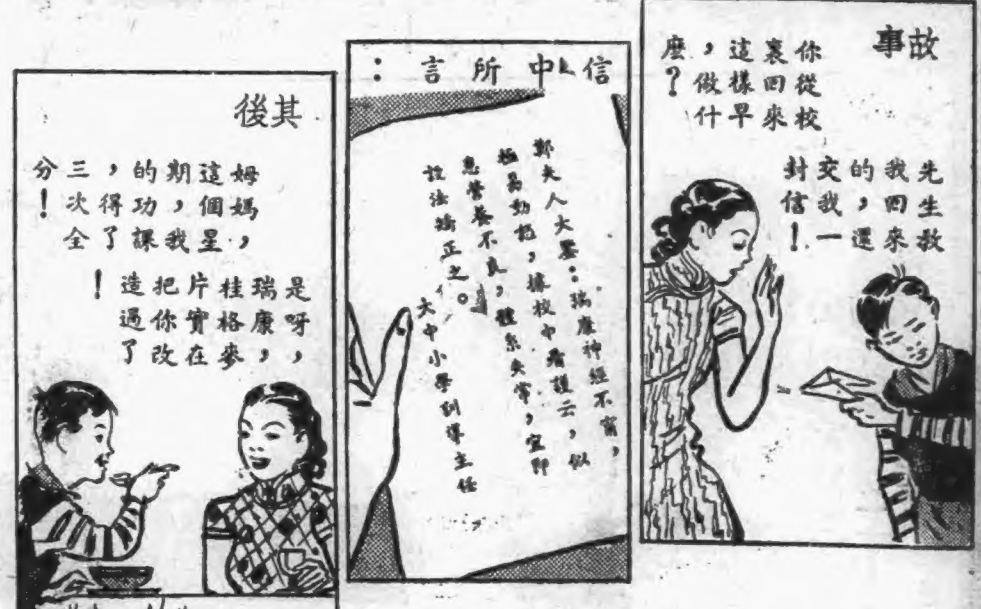 故事
你從校
裏回來
這樣早
，做什
麼？
先生教
我回來
的，還
交我一
封信！
信中所言：
鄭夫人大鑒：瑞康神經不甯，
極易動怒，據校中看護云，似
患營養不良，體氣失常，宜即
設法矯正之。
大中小學訓導主任
其後
姆媽，
這個星
期，我
的功課
，得了
三次全
分！
是呀，
瑞康，
桂格麥
片實在
把你改
造過了
！